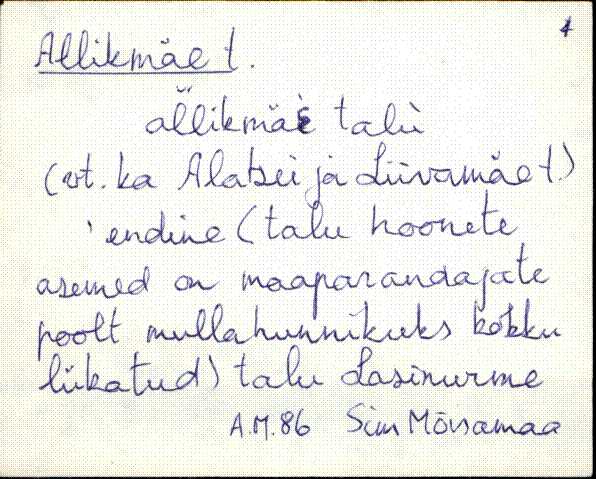 4
Allikmäe t.
allikmäe talu
(vt. ka Alatsei ja Liivamäe t.)
'endine (talu hoonete
asemed on maaparandajate
poolt mullahunnikuks kokku
lükatud) talu Lasinurme
A.M.86 Sim Mõisamaa